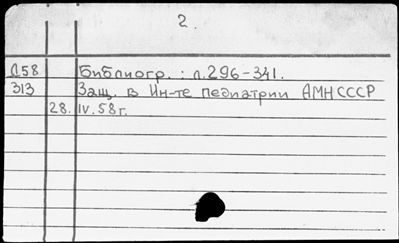 2.
Д58 Библиогр.: л.296-341.
313 Защ. в Ин-те педиатрии АМН СССР
28. IV.58г.